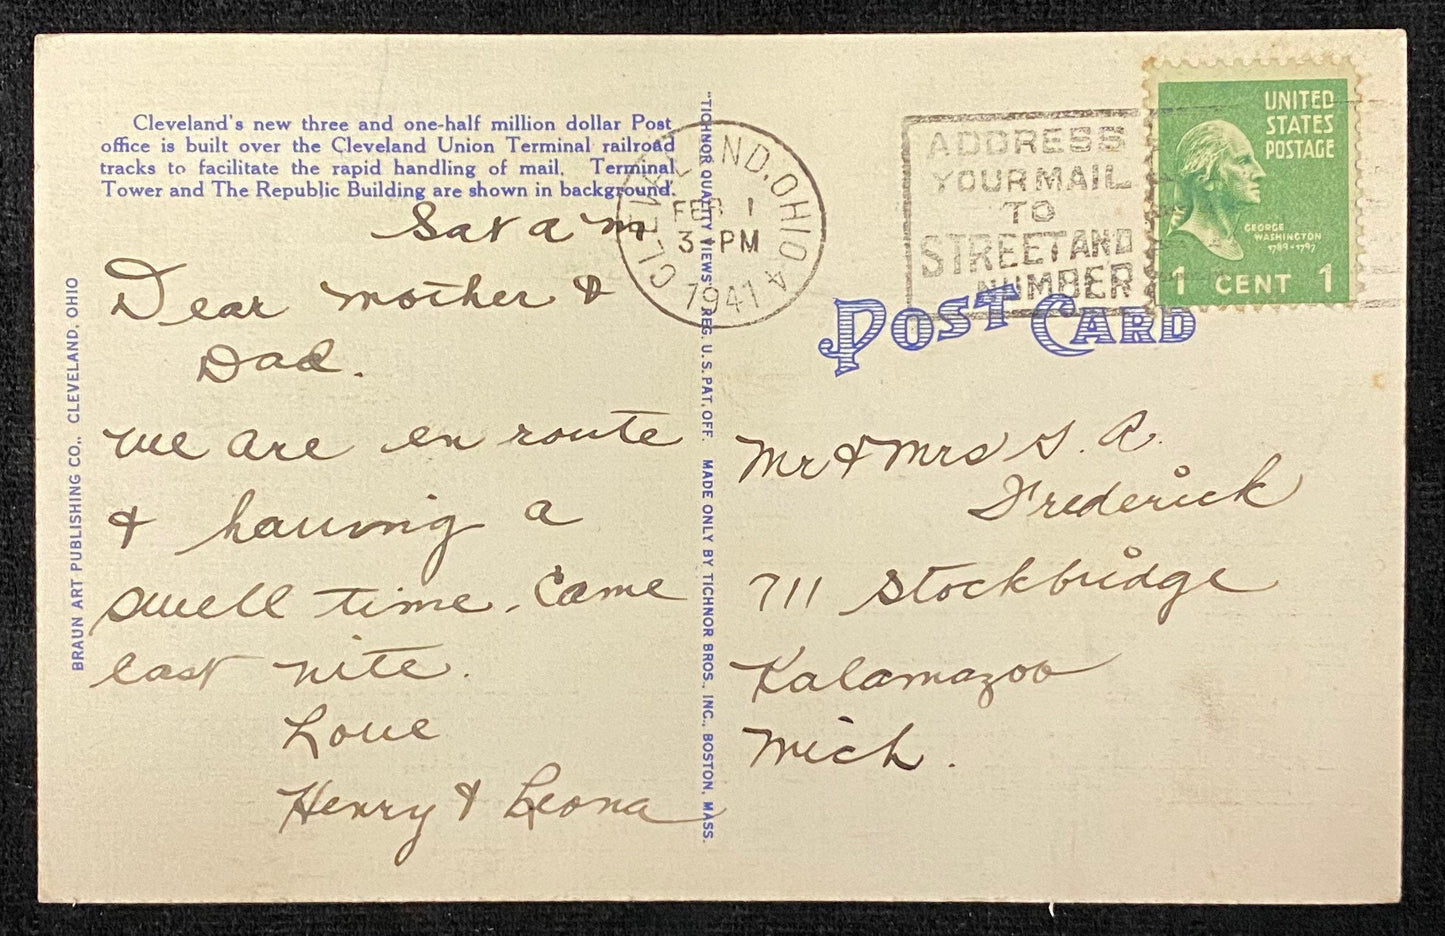 Cleveland's new three and one-half million dollar Post
office is built over the Cleveland Union Terminal railroad
tracks to facilitate the rapid handling of mail. Terminal
Tower and The Republic Building are shown in background.
Sat a m
Dear mother &
Dad.
we are en route
& having a
swell time. Came
last nite.
Love
Henry & Leona
BRAUN ART PUBLISHING CO., CLEVELAND, OHIO
"TICHNOR QUALITY VIEWS" REG. U.S. PAT. OFF. MADE ONLY BY TICHNOR BROS., INC., BOSTON, MASS.
CLEVELAND, OHIO 4
FEB 1
3-PM
1941
ADDRESS
YOUR MAIL
TO
STREET AND
NUMBER
UNITED
STATES
POSTAGE
GEORGE
WASHINGTON
1789-1797
1 CENT 1
POST CARD
Mr & Mrs S. A.
Frederick
711 Stockbridge
Kalamazoo
Mich.